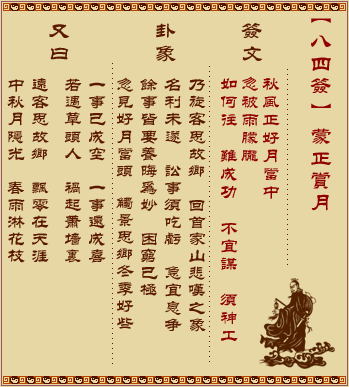 【八四簽】 蒙正賞月
簽文
秋風正好月當中
忽被雨朦朧
如何往 難成功 不宜謀 須神工
卦象
乃旅客思故鄉 回首家山悲嘆之家
名利未遂 訟事須吃虧 急宜息爭
餘事皆棄養晦爲妙 困窮已極
忽見好月當頭 觸景思鄉冬季好些
又曰
一事已成空 一事還成喜
若遇草頭人 禍起蕭墻裏
遠客思故鄉 飄零在天涯
中秋月隱光 春雨淋花枝